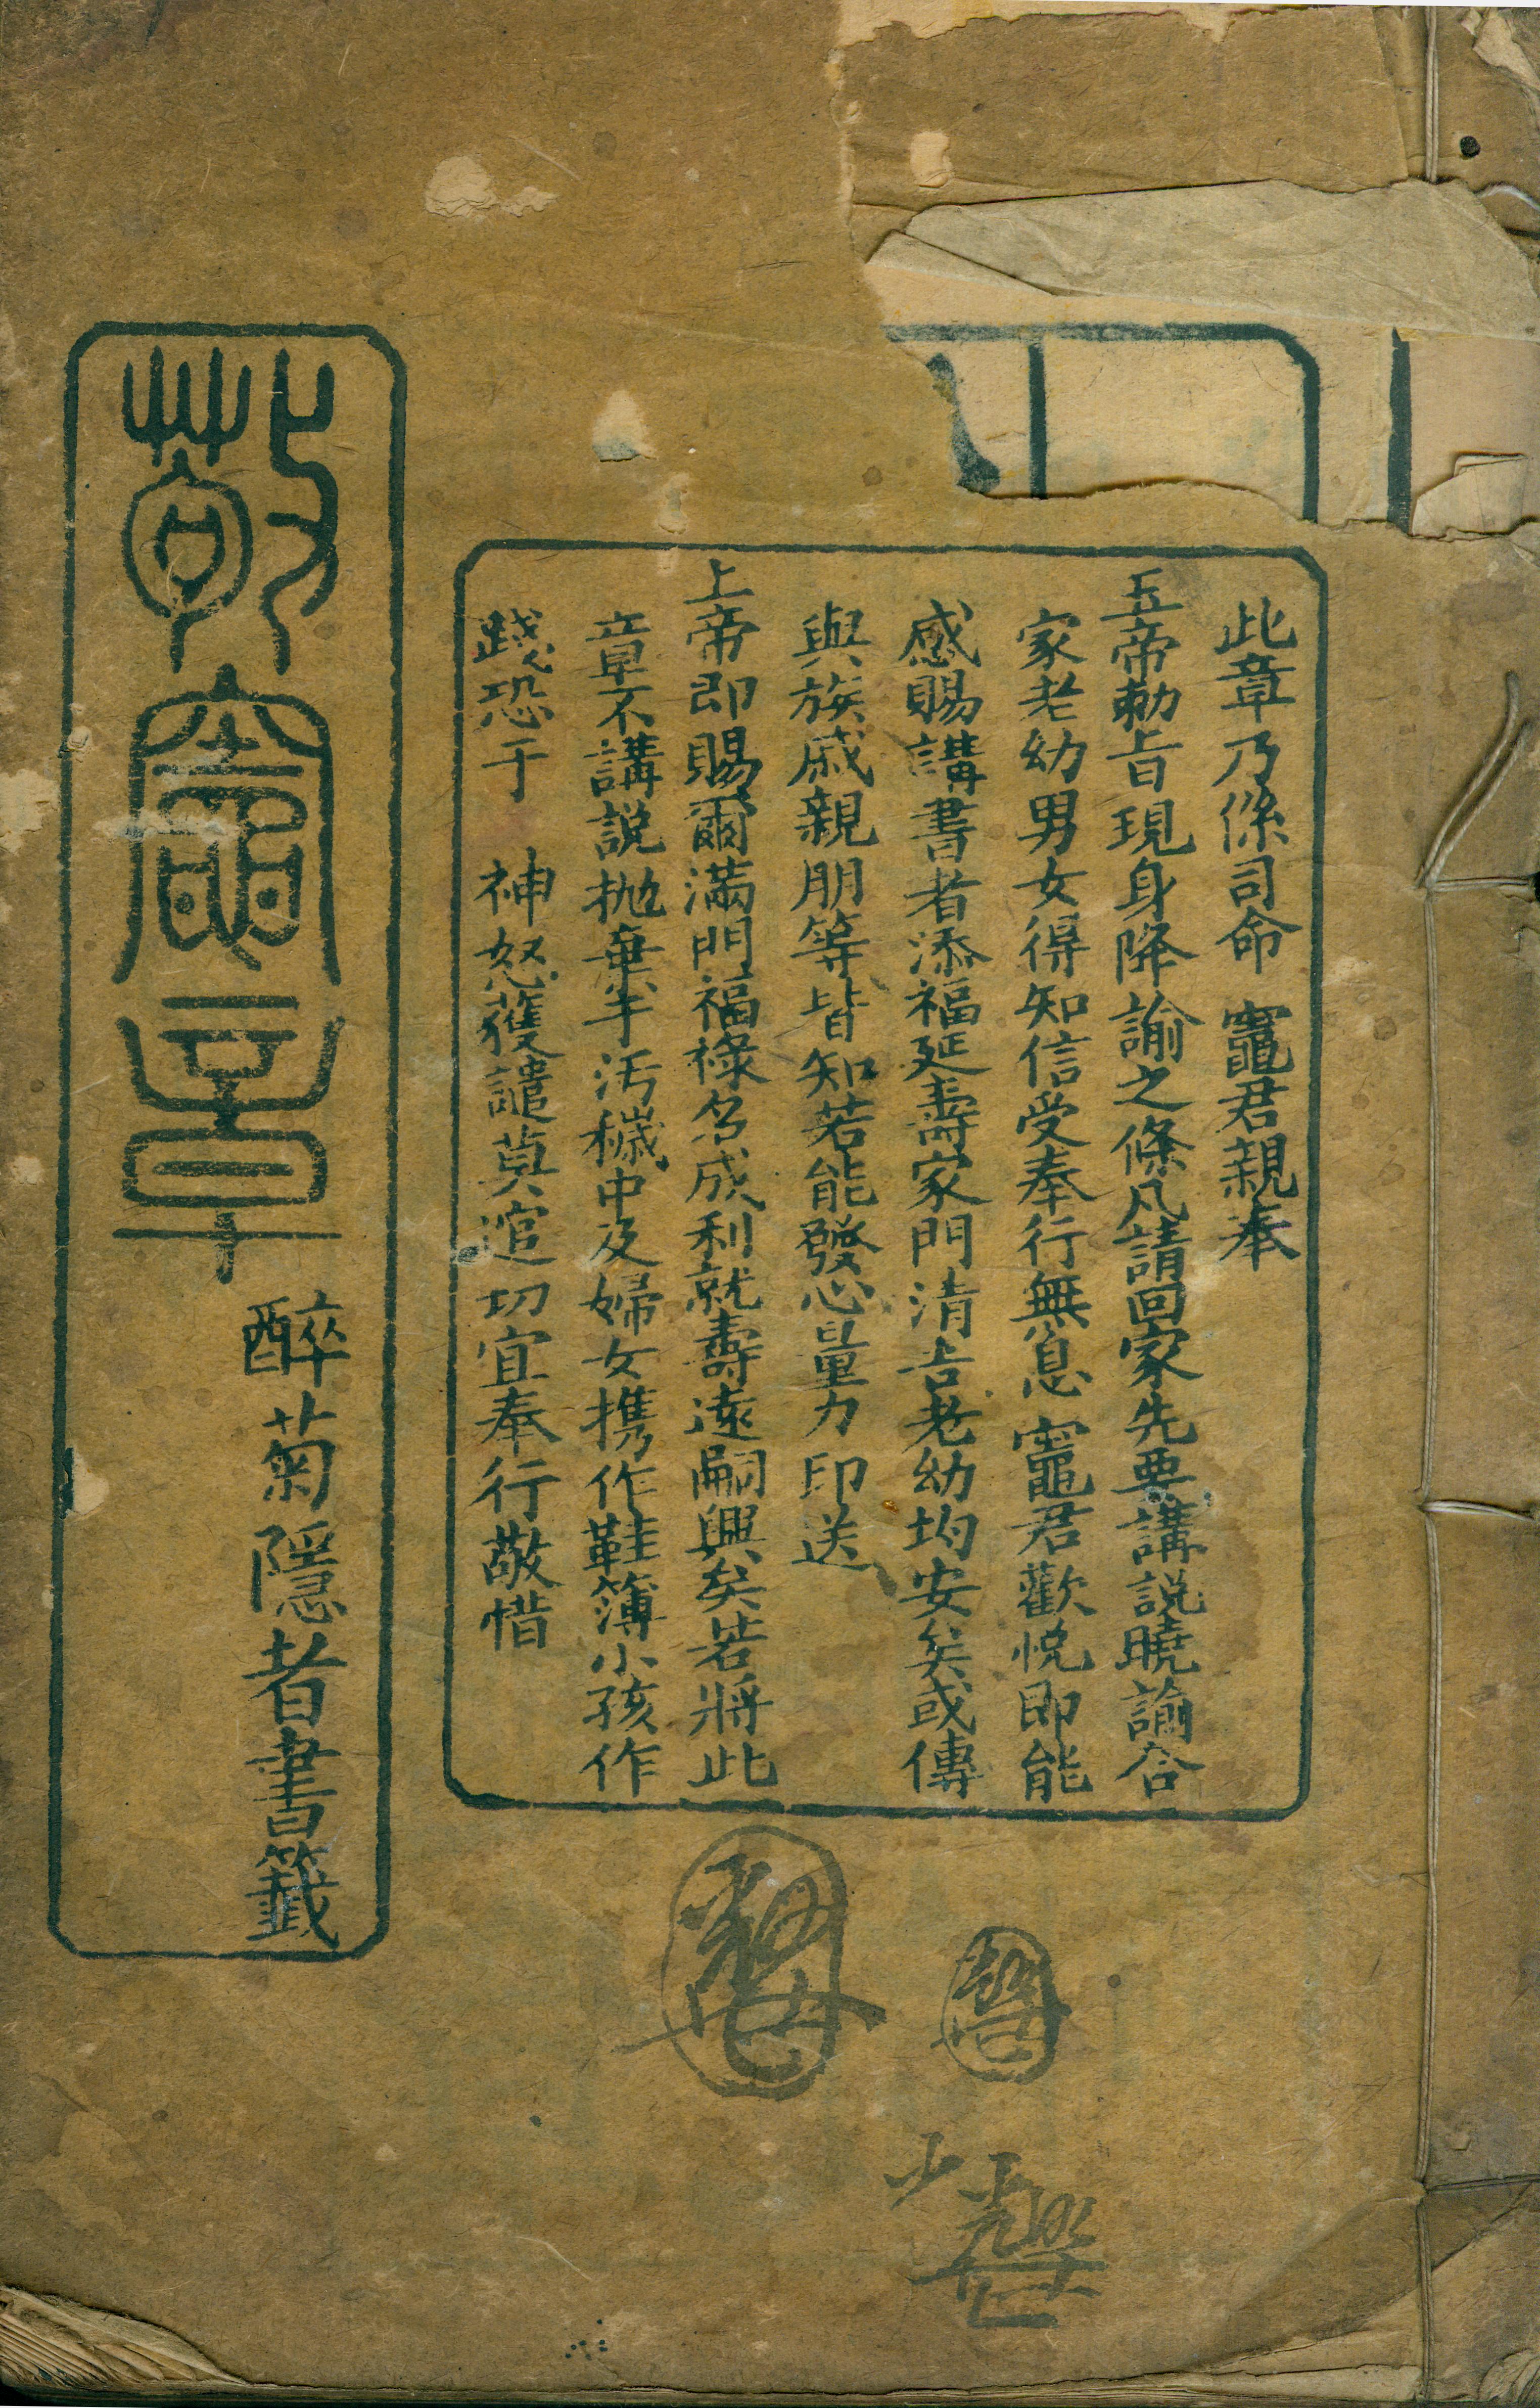 此章乃係司命　竈君親奉
玉帝勅旨現身降諭之條凡請回家先要講説曉諭合
家老幼男女得知信受奉行無息　竈君歡悦即能
感賜講書者添福延壽家門清吉老幼均安矣或傳
與族戚親朋等皆知若能發心量力印送
上帝即賜爾滿門福祿名成利就壽遠嗣興矣若將此
章不講説抛棄于汚穢中及婦女携作鞋簿小孩作
踐恐于　神怒獲譴莫逭切宜奉行敬惜
敬竈章
醉菊隱者書籤